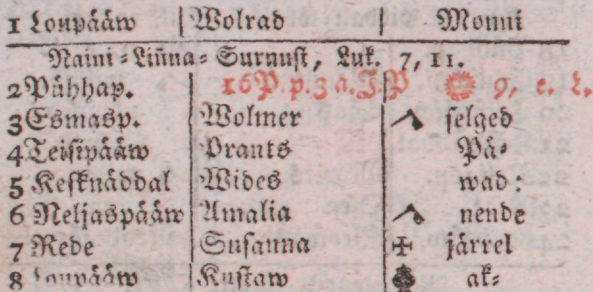 1 Loupääw Wolrad Monni
Naini-Liñna-Surnust, Luk. 7, 11.
2 Pühhap. 16 P. p. 3 a. J. P 9, e. L.
3 Esmasp. Wolmer selged
4 Teisipääw Prants Pä-
5 Kesknäddal Wides wad:
6 Neljaspääw Amalia nende
7 Rede Susanna järrel
8 Loupääw Kustaw ak-